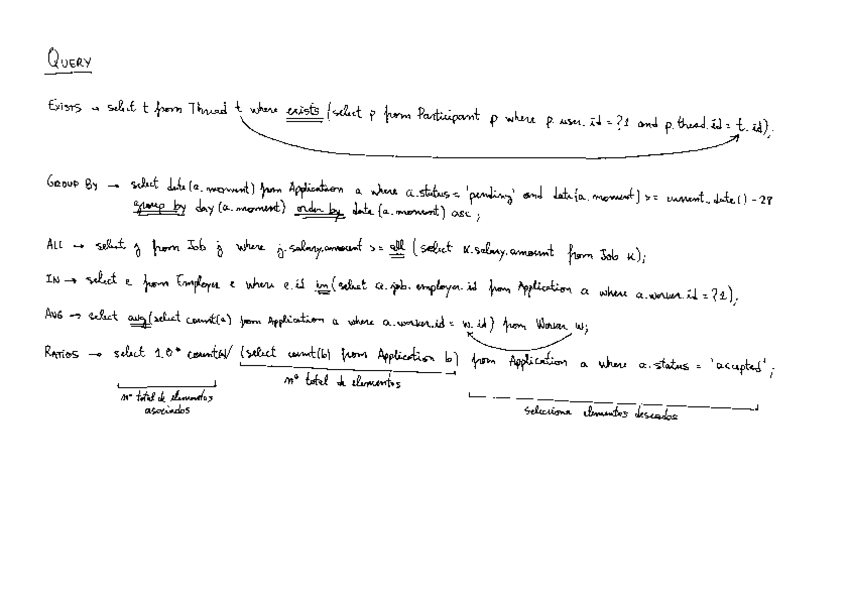 QUERY
EXISTS → select t from Thread t where exists (select p from Participant p where p.user.id = ?1 and p.thread.id = t.id);
GROUP BY → select date(a.moment) from Application a where a.status = 'pending' and date(a.moment) >= current_date() - 28
group by day(a.moment) order by date(a.moment) asc;
ALL → select j from Job j where j.salary.amount >= all (select k.salary.amount from Job k);
IN → select e from Employer e where e.id in (select a.job.employer.id from Application a where a.worker.id = ?1);
AVG → select avg(select count(a) from Application a where a.worker.id = w.id) from Worker w;
RATIOS → select 1.0* count(a)/ (select count(b) from Application b) from Application a where a.status = 'accepted';
nº total de elementos
asociados
nº total de elementos
selecciona elementos deseados